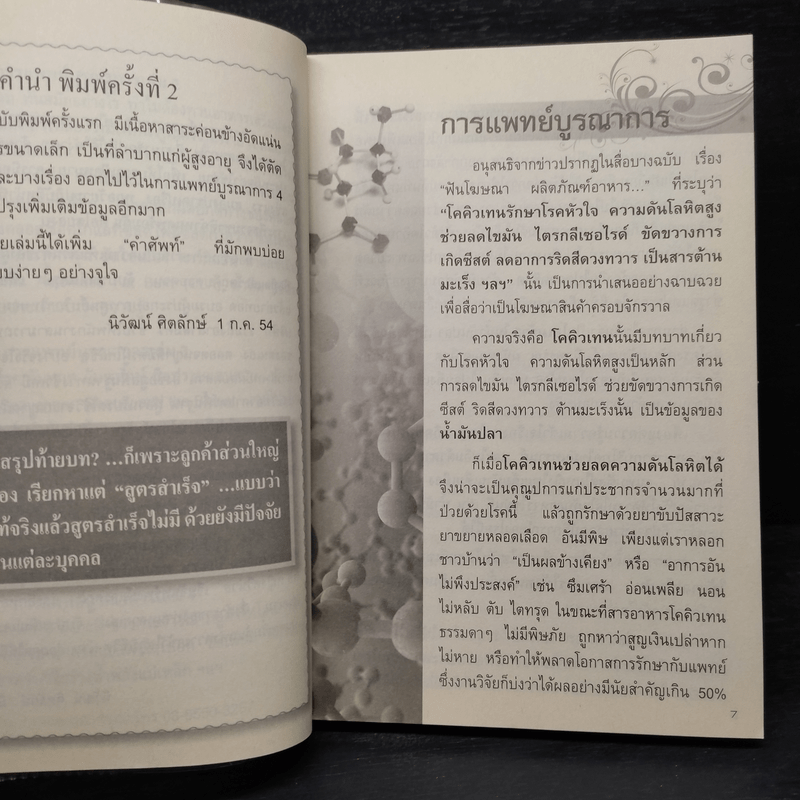 คำนำ พิมพ์ครั้งที่ 2
บับพิมพ์ครั้งแรก มีเนื้อหาสาระค่อนข้างอัดแน่น
รขนาดเล็ก เป็นที่ลำบากแก่ผู้สูงอายุ จึงได้ตัด
ละบางเรื่อง ออกไปไว้ในการแพทย์บูรณาการ 4
ปรุงเพิ่มเติมข้อมูลอีกมาก
ยเล่มนี้ได้เพิ่ม “คำศัพท์” ที่มักพบบ่อย
บบง่ายๆ อย่างจุใจ
นิวัฒน์ ศิตลักษ์ 1 ก.ค. 54
สรุปท้ายบท? ...ก็เพราะลูกค้าส่วนใหญ่
อง เรียกหาแต่ “สูตรสำเร็จ” ...แบบว่า
ท้จริงแล้วสูตรสำเร็จไม่มี ด้วยยังมีปัจจัย
นแต่ละบุคคล
การแพทย์บูรณาการ
อนุสนธิจากข่าวปรากฏในสื่อบางฉบับ เรื่อง
“ฟันโฆษณา ผลิตภัณฑ์อาหาร...” ที่ระบุว่า
“โคคิวเทนรักษาโรคหัวใจ ความดันโลหิตสูง
ช่วยลดไขมัน ไตรกลีเซอไรด์ ขัดขวางการ
เกิดซีสต์ ลดอาการริดสีดวงทวาร เป็นสารต้าน
มะเร็ง ฯลฯ” นั้น เป็นการนำเสนออย่างฉาบฉวย
เพื่อสื่อว่าเป็นโฆษณาสินค้าครอบจักรวาล
ความจริงคือ โคคิวเทนนั้นมีบทบาทเกี่ยว
กับโรคหัวใจ ความดันโลหิตสูงเป็นหลัก ส่วน
การลดไขมัน ไตรกลีเซอไรด์ ช่วยขัดขวางการเกิด
ซีสต์ ริดสีดวงทวาร ต้านมะเร็งนั้น เป็นข้อมูลของ
น้ำมันปลา
ก็เมื่อโคคิวเทนช่วยลดความดันโลหิตได้
จึงน่าจะเป็นคุณูปการแก่ประชากรจำนวนมากที่
ป่วยด้วยโรคนี้ แล้วถูกรักษาด้วยยาขับปัสสาวะ
ยาขยายหลอดเลือด อันมีพิษ เพียงแต่เราหลอก
ชาวบ้านว่า “เป็นผลข้างเคียง” หรือ “อาการอัน
ไม่พึงประสงค์” เช่น ซึมเศร้า อ่อนเพลีย นอน
ไม่หลับ ตับ ไตทรุด ในขณะที่สารอาหารโคคิวเทน
ธรรมดาๆ ไม่มีพิษภัย ถูกหาว่าสูญเงินเปล่าหาก
ไม่หาย หรือทำให้พลาดโอกาสการรักษากับแพทย์
ซึ่งงานวิจัยก็บ่งว่าได้ผลอย่างมีนัยสำคัญเกิน 50%
7